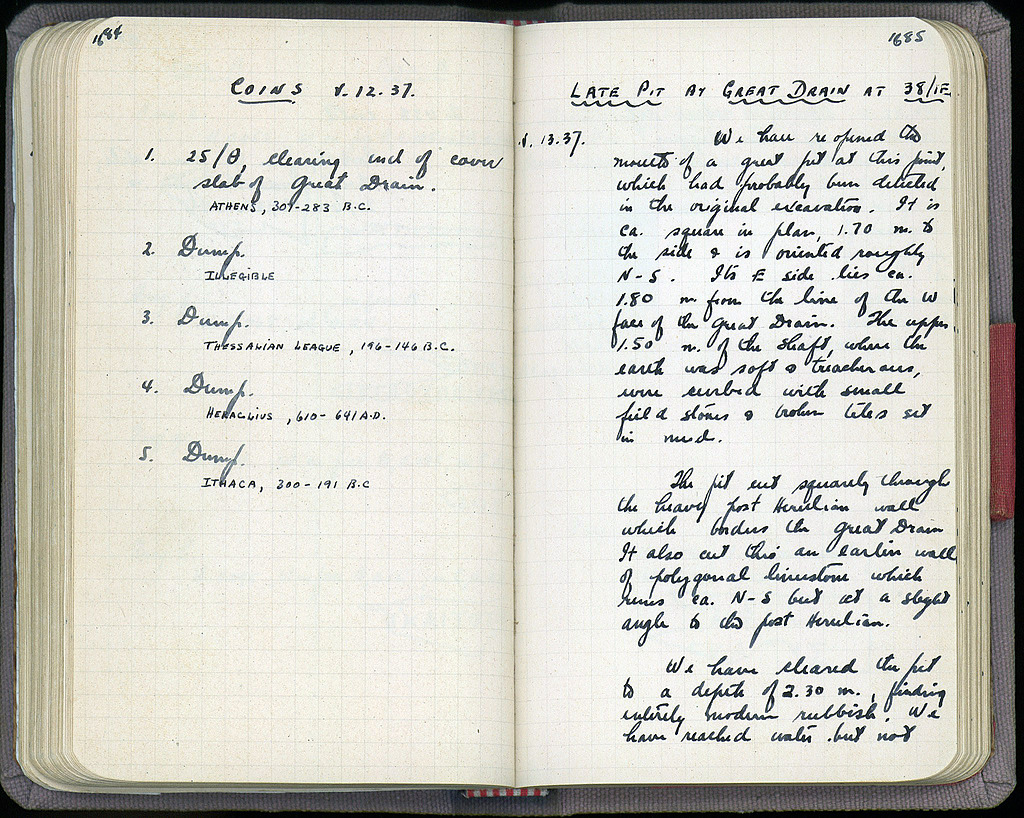 1684
COINS V.12.37.
1. 25/Θ, clearing end of cover
slab of Great Drain.
ATHENS, 307-283 B.C.
2. Dump.
ILLEGIBLE
3. Dump.
THESSALIAN LEAGUE, 196-146 B.C.
4. Dump.
HERACLIUS, 610-641 A.D.
5. Dump.
ITHACA, 300-191 B.C
1685
LATE PIT BY GREAT DRAIN AT 38/ΙΕ
V. 13.37. We have re opened the
mouth of a great pit at this point,
which had probably been detected
in the original excavation. It is
ca. square in plan, 1.70 m. to
the side & is oriented roughly
N-S. Its E side lies ca.
1.80 m. from the line of the W
face of the Great Drain. The upper
1.50 m. of the shaft, where the
earth was soft & treacherous,
were curbed with small
field stones & broken tiles set
in mud.
The pit cut squarely through
the heavy post Herulian wall
which borders the Great Drain
It also cut thro' an earlier wall
of polygonal limestone which
runs ca. N-S but at a slight
angle to the post Herulian.
We have cleared the pit
to a depth of 2.30 m., finding
entirely modern rubbish. We
have reached water but not